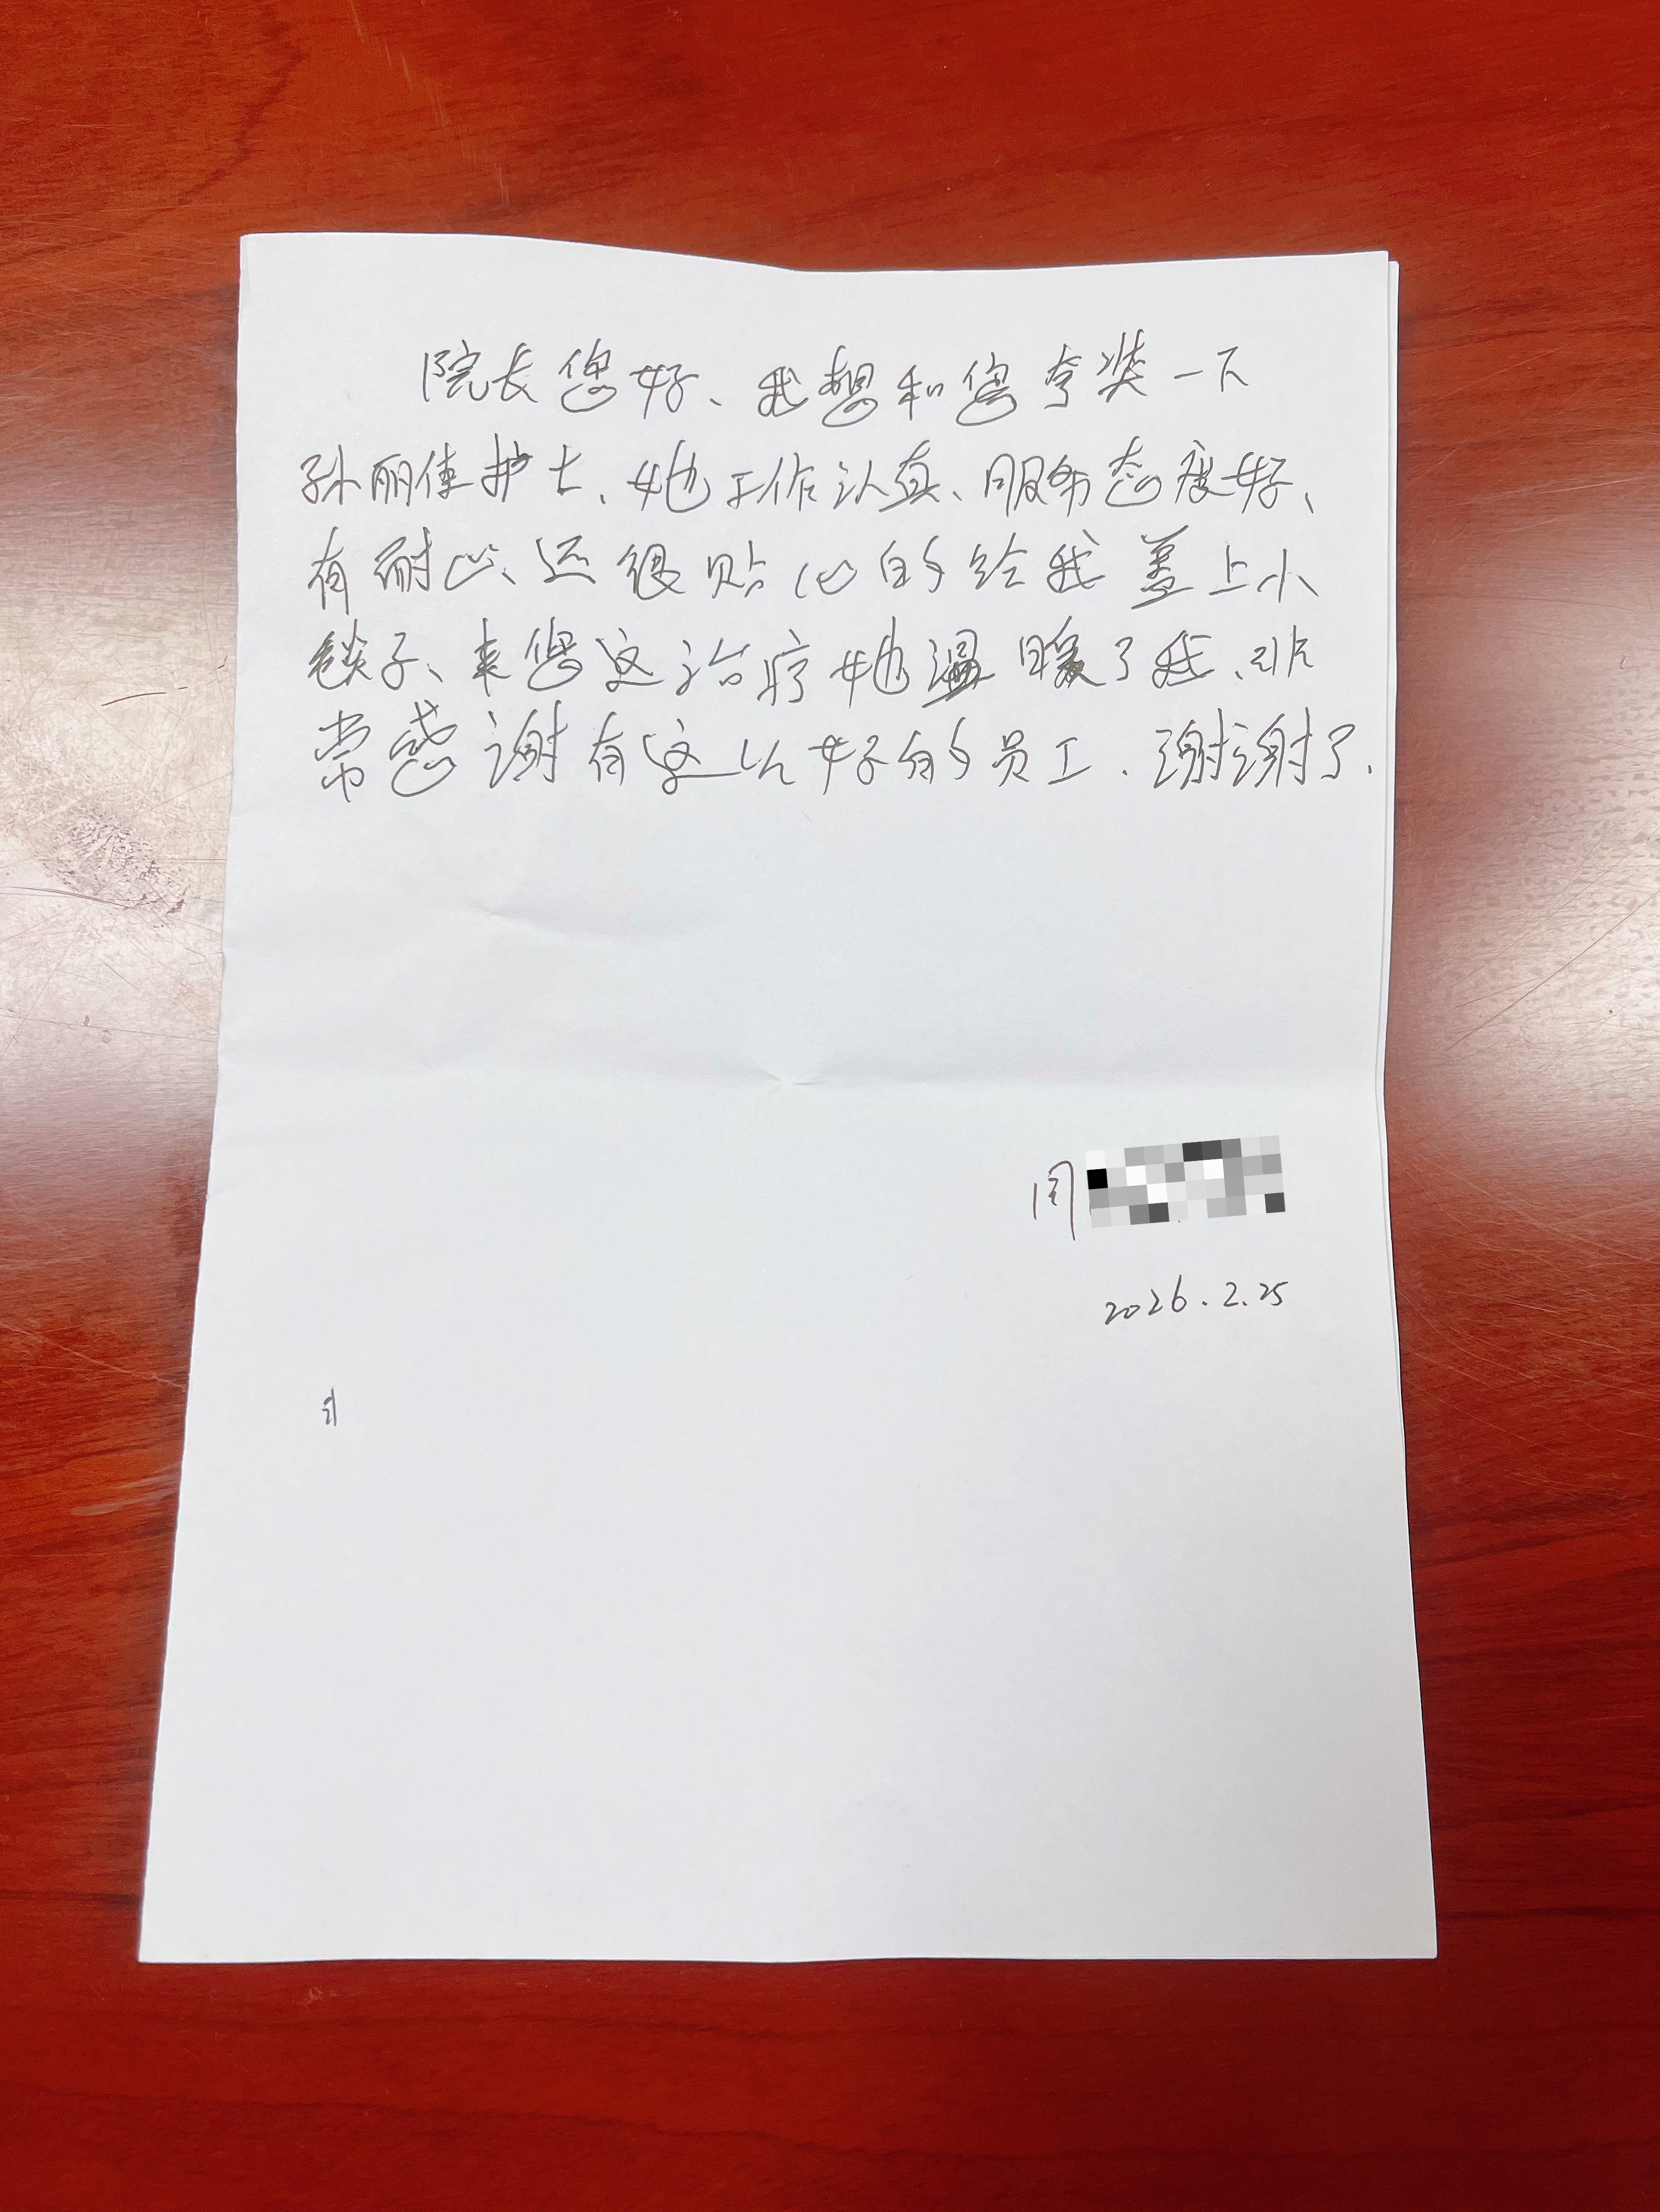 院长您好、我想和您夸奖一下
孙丽佳护士、她工作认真、服务态度好、
有耐心、还很贴心的给我盖上小
毯子、来您这治疗她温暖了我、非
常感谢有这么好的员工.谢谢了.
周
2026.2.25